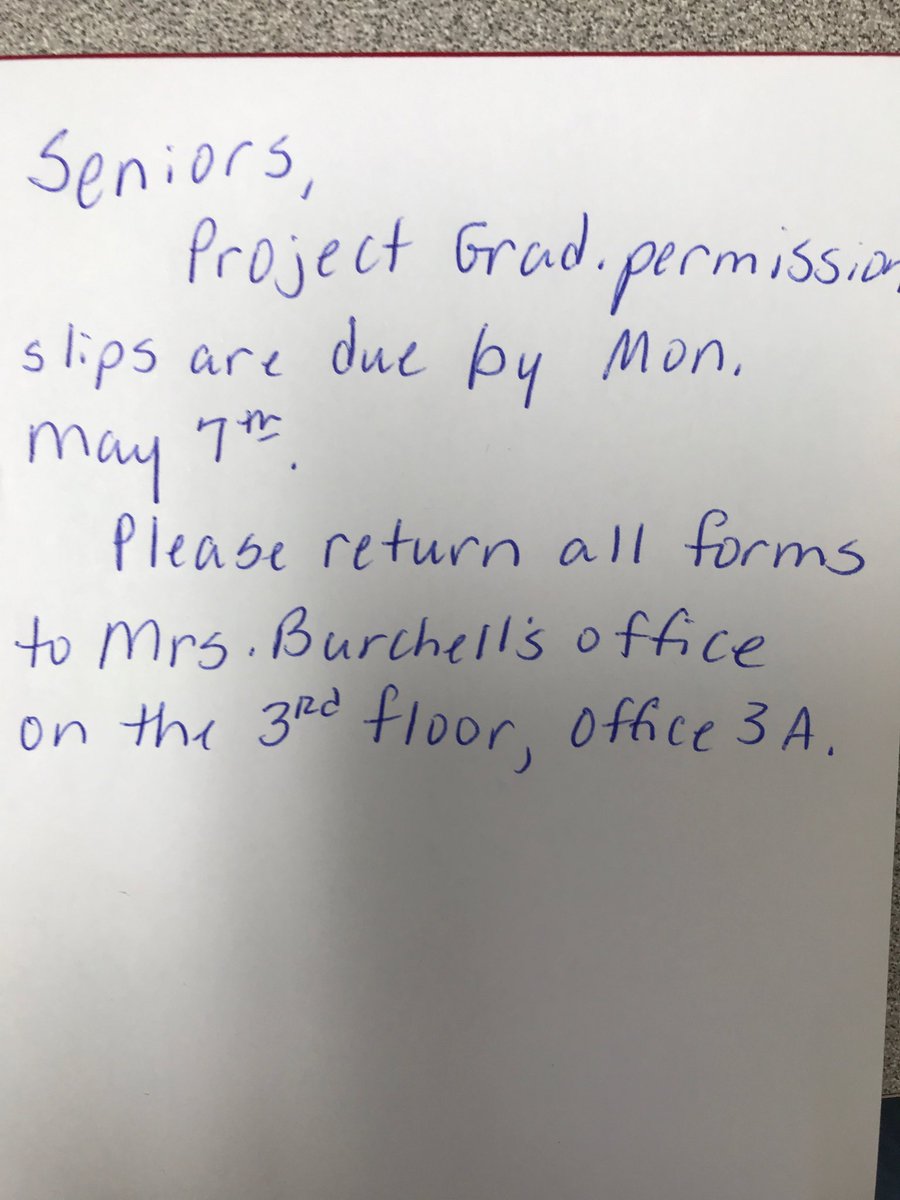 Seniors,
Project Grad. permission
slips are due by Mon.
May 7th.
Please return all forms
to Mrs. Burchell's office
on the 3rd floor, office 3A.